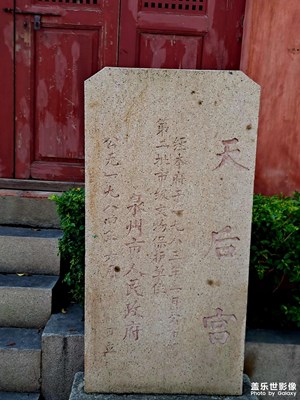 天后宫
经本府于一九八三年一月公布为
第二批市级文物保护单位
泉州市人民政府
公元一九八四年六月 立
盖乐世社区
Photo by Galaxy